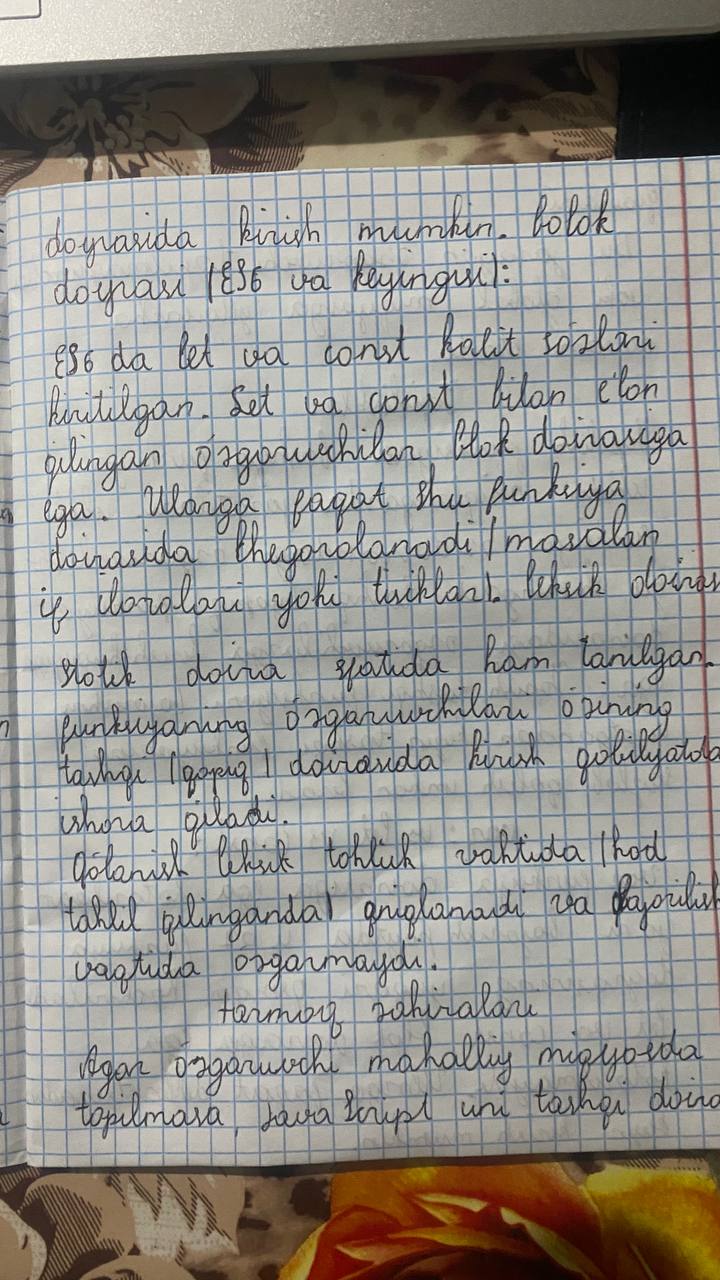 doyrasida kirish mumkin. bolok
doyrasi (ES6 va keyingisi):
ES6 da let va const kalit so'zlari
kiritilgan. Let va const bilan e'lon
qilingan o'zgaruvchilar blok doirasiga
ega. Ularga faqat shu funksiya
doirasida chegaralanadi (masalan
if iloralari yoki tsikllar). leksik doiras
statik doira sifatida ham tanilgan.
funksiyaning o'zgaruvchilari o'zining
tashqi (qopiq) doirasida kirish qobilyatda
ishora qiladi.
Qo'lanish leksik tahlich vaktida (kod
tahlil qilinganda) aniqlanadi va bajarilish
vaqtida o'zgarmaydi.
tarmoq zahiralari
Agar o'zgaruvchi mahalliy miqyosda
topilmasa, Java Script uni tashqi doira